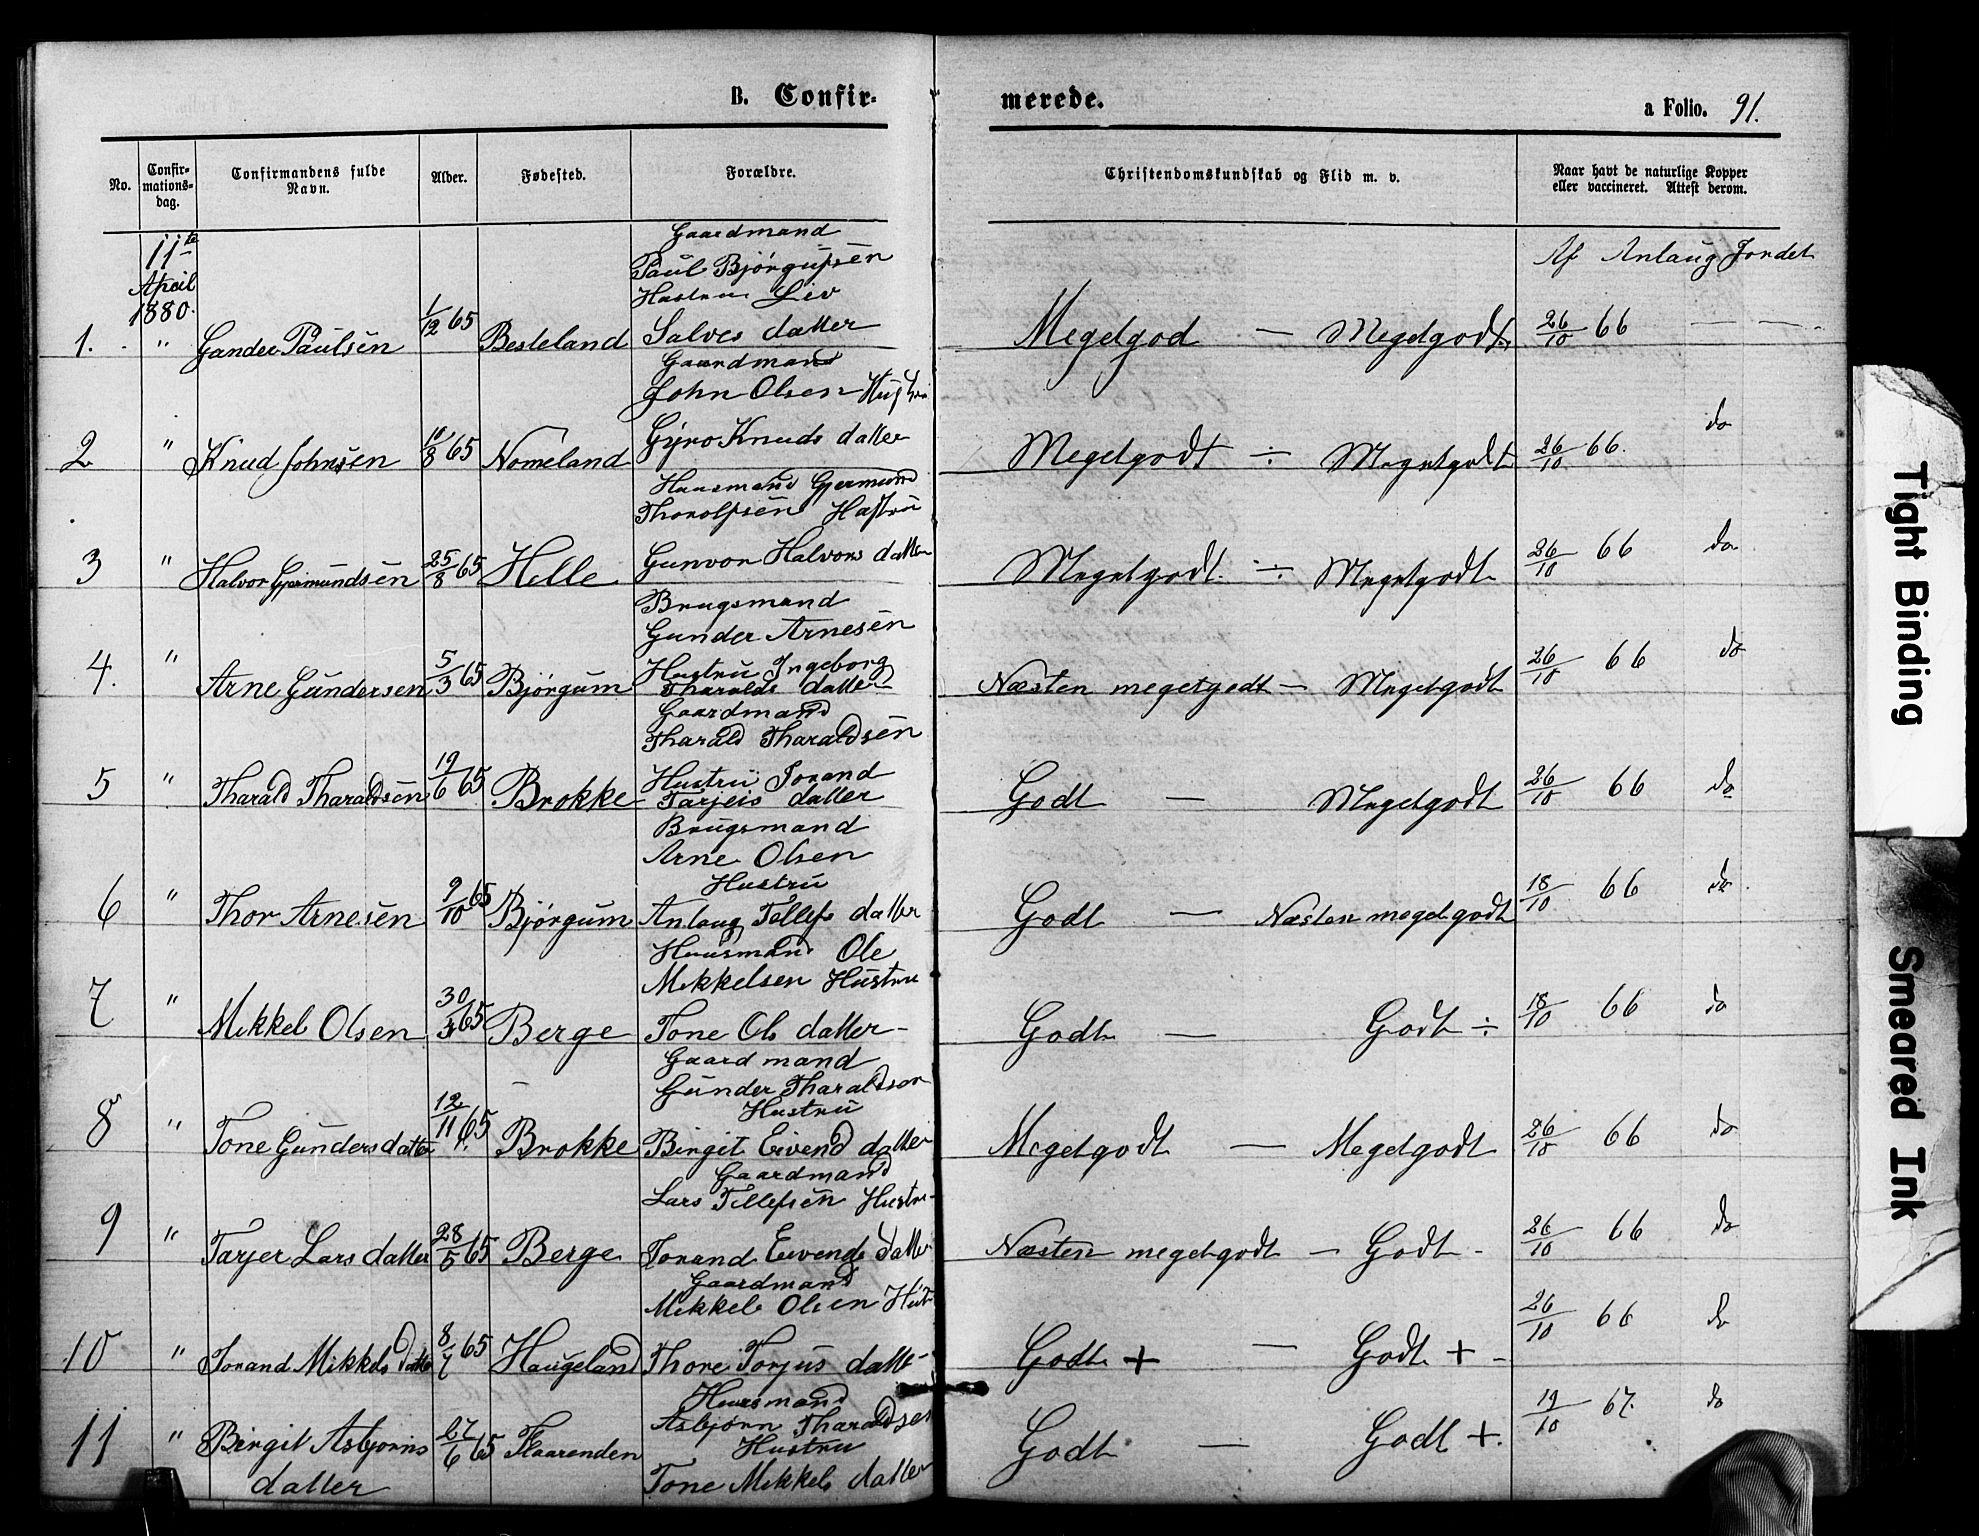 B. Confir-
merede.
a Folio. 91.
No.
Confir-
mations-
dag.
Confirmandens fulde
Navn.
Alder.
Fødested.
Forældre.
Christendomskundskab og Flid m. v.
Naar havt de naturlige Kopper
eller vaccineret. Attest derom.
11te
April
1880.
Af Anlaug Jordet
Gaardmand
Paul Bjørgufsen
Hustru Liv
1. " Gunder Paulsen 1/12 65 Besteland Salves datter Megetgod — Megetgodt 26/10 66 — —
Gaardmand
John Olsen Hustru
2 " Knud Johnsen 10/8 65 Nomeland Gyro Knuds datter Megetgodt ÷ Megetgodt 26/10 66. do
Huusmand Gjermund
Thorolfsen Hustru
3 " Halvor Gjermundsen 25/8 65 Helle Gunvor Halvors datter Megetgodt ÷ Megetgodt 26/10 66 do
Brugsmand
Gunder Arnesen
Hustru Ingeborg
4. " Arne Gundersen 5/3 65 Bjørgum Tharalds datter Næsten megetgodt — Megetgodt 26/10 66 do
Gaardmand
Tharald Tharaldsen
Hustru Torand
5 " Tharald Tharaldsen 19/6 65 Brokke Tarjeis datter Godt — Megetgodt 26/10 66 do
Brugsmand
Arne Olsen
Hustru
6 " Thor Arnesen 9/10 65 Bjørgum Anlaug Tellefs datter Godt — Næsten megetgodt 18/10 66 do
Huusmand Ole
Mikkelsen Hustru
7 " Mikkel Olsen 30/3 65 Berge Tone Ols datter Godt — Godt ÷ 18/10 66 do
Gaardmand
Gunder Tharaldsen
Hustru
8 " Tone Gundersdatter 12/11 65 Brokke Birgit Eivend datter Megetgodt — Megetgodt 26/10 66 do
Gaardmand
Lars Tellefsen Hustru
9 " Tarjer Lars datter 28/5 65 Berge Torand Eivends datter Næsten megetgodt — Godt 26/10 66 do
Gaardmand
Mikkel Olsen Hust
10 " Torand Mikkels datter 8/7 65 Haugeland Thore Torjus datter Godt + — Godt + 26/10 66 do
Huusmand
Asbjørn Tharaldsen
Hustru
11 " Birgit Asbjørns 27/6 65 Flaarenden Godt — Godt +. 19/10 67. do
datter Tone Mikkels datter
Tight Binding
Smeared Ink